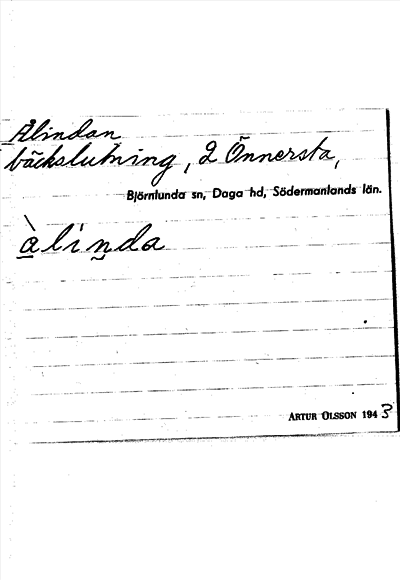 Ålindan
bäckslutning, 2 Önnersta,
Björnlunda sn, Daga hd, Södermanlands län.
àlinda
ARTUR OLSSON 1943